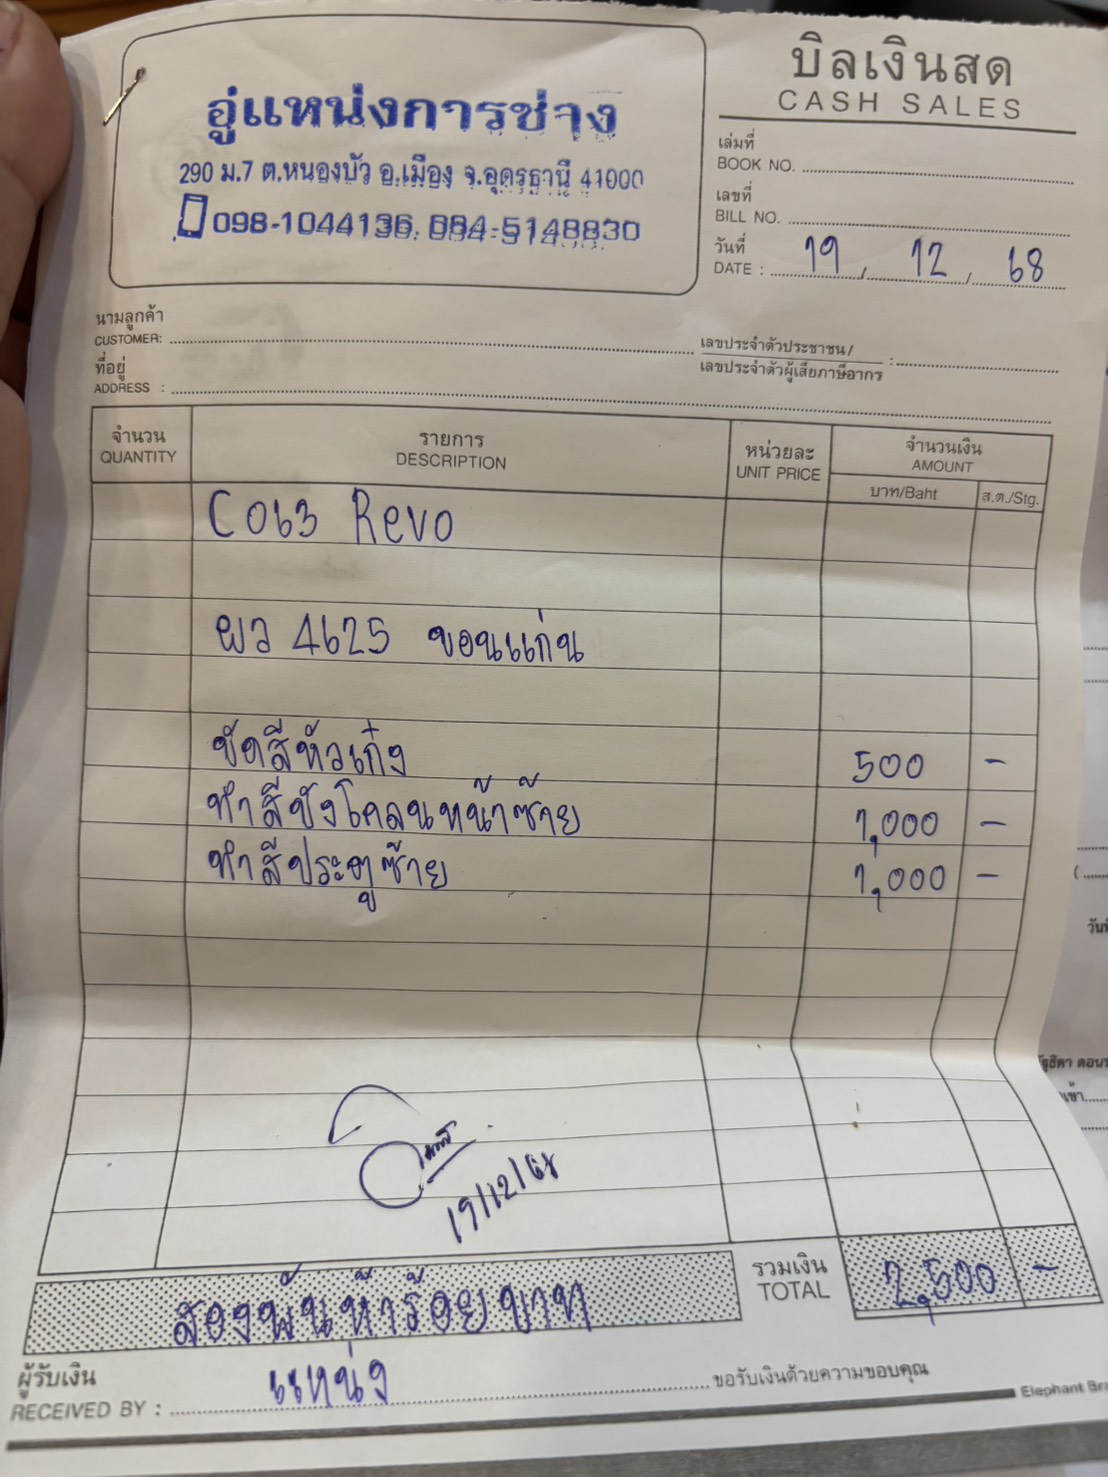 อู่แหน่งการช่าง
290 ม.7 ต.หนองบัว อ.เมือง จ.อุดรธานี 41000
098-1044136, 084-5148830
บิลเงินสด
CASH SALES
เล่มที่
BOOK NO.
เลขที่
BILL NO.
วันที่
DATE : 19 / 12 / 68
นามลูกค้า
CUSTOMER:
เลขประจำตัวประชาชน/
เลขประจำตัวผู้เสียภาษีอากร :
ที่อยู่
ADDRESS :
จำนวน รายการ หน่วยละ จำนวนเงิน
QUANTITY DESCRIPTION UNIT PRICE AMOUNT
บาท/Baht ส.ต./Stg.
C063 Revo
ผว 4625 ขอนแก่น
ขัดสีหัวเก๋ง 500 -
ทำสีบังโคลนหน้าซ้าย 1,000 -
ทำสีประตูซ้าย 1,000 -
19/12/68
สองพันห้าร้อยบาท
รวมเงิน
TOTAL 2,500 -
ผู้รับเงิน
RECEIVED BY : แหน่ง
ขอรับเงินด้วยความขอบคุณ
Elephant Bra